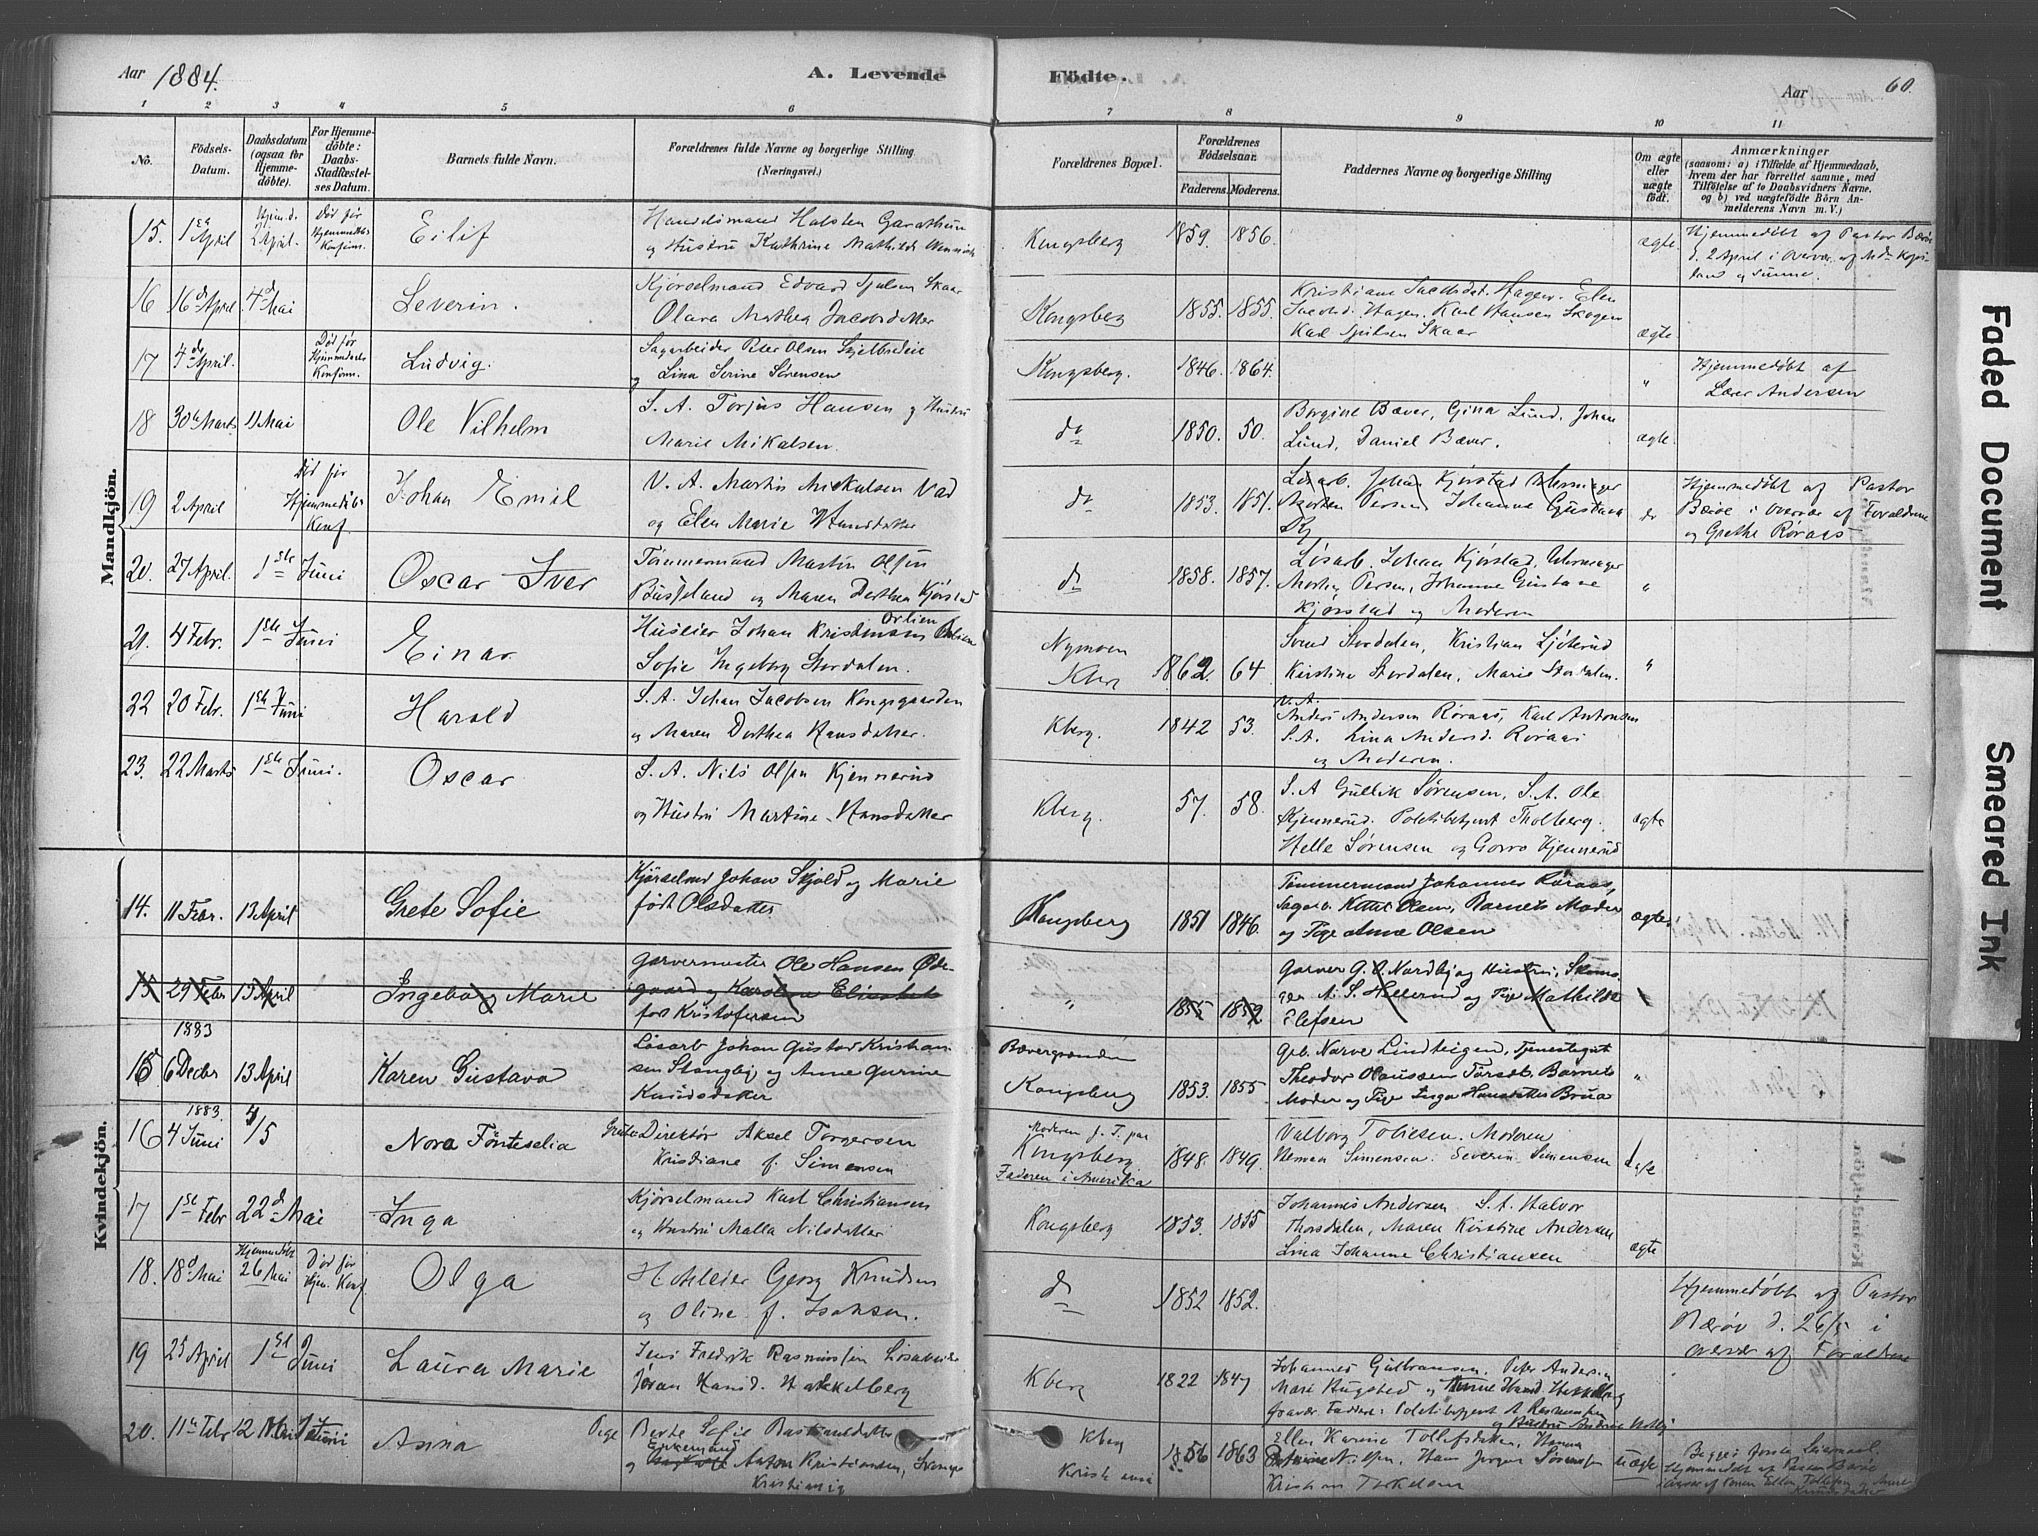 Aar 1884.
A. Levende
Födte.
Aar
60.
1 2 3 4 5 6 7 8 9 10 11
No.
Födsels-Datum.
Daabsdatum (ogsaa for Hjemme-döbte).
For Hjemme-döbte: Daabs-Stadfæstel-ses Datum.
Barnets fulde Navn.
Forældrenes fulde Navne og borgerlige Stilling
(Næringsvei.)
Forældrenes Bopæl.
Forældrenes Födselsaar.
Faderens. Moderens.
Faddernes Navne og borgerlige Stilling
Om ægte eller uægte født.
Anmærkninger
(saasom: a) i Tilfælde af Hjemmedaab,
hvem der har forrettet samme, med
Tilföielse af to Daabsvidners Navne.
og b) ved uægtefödte Börn An-
melderens Navn m. V.)
Mandkjön.
15. 1 April Hjem.d. 2 April. Død før Hjemmedaabs Konfirm. Eilif
Handelsmand Halsten Garathun
og Hustru Kathrine Mathilde
Kongsberg 1859. 1856. ægte
Hjemmedøbt af Pastor Bærøe
d. 2 April i Overvær af
16 16 April 4 Mai Severin.
Kjørselmand Edvard Skaar
Olara Mathea Jacobsdatter
Kongsberg 1855. 1855.
Kristiane Jacobsdat. Hagen. Elen
Jacobsd. Hagen. Karl Hansen Skogen
Karl Skaar
ægte
17 4 April. Død før Hjemmedaabs Konfirm. Ludvig.
Sagarbeider Peter Olsen
og Lina Serine Sørensen
Kongsberg. 1846. 1864. "
Hjemmedøbt af
Lærer Andersen
18 30 Marts 4 Mai Ole Vilhelm
S. A. Torjus Hansen og Hustru
Marie Mikalsen.
do 1850. 50.
Borgine Bæver, Gina Lund, Johan
Lund, Daniel Bæver.
ægte
19 2 April Død før Hjemmedaabs Konf. Johan Emil
V. A. Martin Mikalsen Vad
og Elen Marie Hansdatter
do 1853. 1851.
Løsarb. Johan Kjørstad
Morten Persen Johanne Gustava
do
Hjemmedøbt af Pastor
Bærøe i Overvær af Forældrene
og Grethe Røraas
20. 27 April. 1ste Juni Oscar Iver
Tømmermand Martin Olsen
og Maren Dorthea Kjørstad
do 1858. 1857.
Løsarb. Johan Kjørstad,
Morten Persen, Johanne Gustave
Kjørstad og Moderen
"
21. 4 Febr. 1ste Juni Einar
Huseier Johan Kristensen Orlien
Sofie Ingeborg Stordalen.
Nymoen
Kberg 1862. 64
Svend Stordalen, Kristian
Kirstine Stordalen, Marie Stordalen.
"
22 20 Febr. 1ste Juni Harald
S. A. Johan Jacobsen Kongsgaarden
og Maren Dorthea Hansdatter.
Kberg. 1842 53.
V. A.
Anders Andersen Røraas, Karl Antonsen
S. A. Lina Andersd. Røraas
og Moderen.
23. 22 Marts 1ste Juni. Oscar
S. A. Nils Olsen Kjennerud
og Hustru Martine Hansdatter
Kberg. 57. 58.
S. A Gullik Sørensen, S. A. Ole
Kjennerud. Politibetjent Tholberg.
Helle Sørensen og Gorro Kjennerud
ægte
Kvindekjön.
14. 11 13 April Grete Sofie
Kjørselmd Johan Skjold og Marie
født Olsdatter
Kongsberg 1851 1846.
Tømmermand Johannes Røraas,
Sagarb. Kittel Olsen, Barnets Moder
og Pige Anne Olsen
ægte
15 29 Febr 13 April Ingeborg Marie
Garvermester Ole Hansen Øde-
gaard og Karoline Elisabet
født Kristofersen
" 1855 1852
Garver G. O. Nordby og Hustru, Skoma-
ger A. S. Hellerud og Pige Mathilde
Elefsen
1883
15 6 Decbr 13 April Karen Gustava
Løsarb Johan Gustav Kristian-
sen Stangby og Anne Gurine
Knudsdatter
Bævergrænden
Kongsberg 1853. 1855
Gb. Narve Lindteigen, Tjenestegut
Theodor Olaussen Barnets
Moder og Pige Inga Hansdatter Brua
"
1883.
16 4 Juni 4/5 Nora
Direktør Aksel Torgersen
Kristiane f. Simensen
Moderen f. T. paa
Kongsberg
Faderen i Amerika
1848. 1849.
Valborg Tobiesen. Moderen
Herman Simensen. Severin Simensen
ægte
17 1st Febr 22 Mai Inga
Kjørselmand Karl Christiansen
og Hustru Malla Nilsdatter
Kongsberg 1853. 1855
Johannes Andersen S. A. Halvor
Thorsdalen, Maren Kirstine Andersen
Lina Johanne Christiansen
ægte
18. 18 Mai Hjemmedøbt 26 Mai Død før Hjem. Konf. Olga
Georg Knudsen
og Oline f. Isaksen.
do 1852 1852.
Hjemmedøbt af Pastor
Bærøe d. 26/5 i
Overvær af Forældrene
19 25 April 1st Juni Laura Marie
Jens Fredrik Rasmussen Løsarbeider
Jøran Hansd. Hakkelberg
Kberg 1822 1847
Johannes Gulbransen, Peter Andersen
Mari Hugsted og
Politibetjent
20. 11 Febr 12 Juni Anna
Pige Berte Sofie
og Enkemand Anton Kristiansen,
Kristiania
Kberg
Kristiania
1856 1863
Ellen Karine Tollefsdatter, Hanna
Nilsen, Hans Jørgen Sørensen
Kristian Torkelsen
uægte
Begges første Leiermaal.
Hjemmedøbt af Pastor Bærøe
Faded Document
Smeared Ink